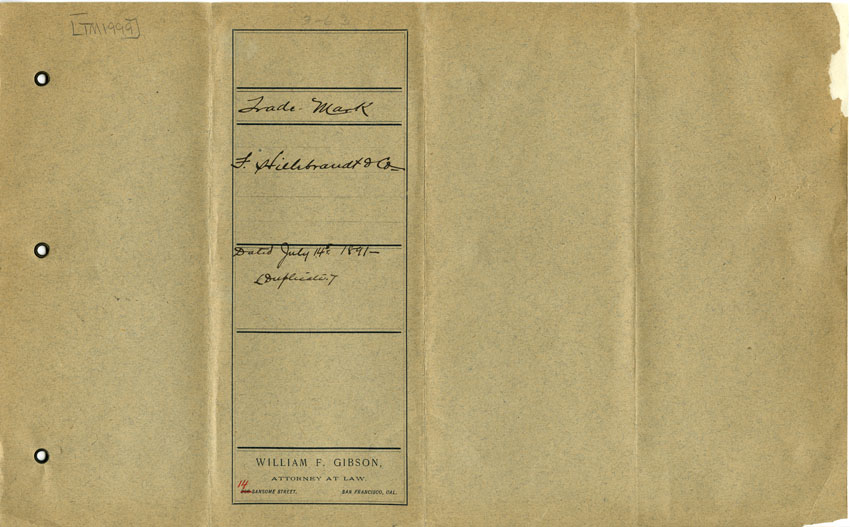 [TM1999]
3-63
Trade-Mark
F. Hillebrandt & Co
Dated July 14th 1891-
[Duplicate.]
WILLIAM F. GIBSON,
ATTORNEY AT LAW.
14
SANSOME STREET, SAN FRANCISCO, CAL.